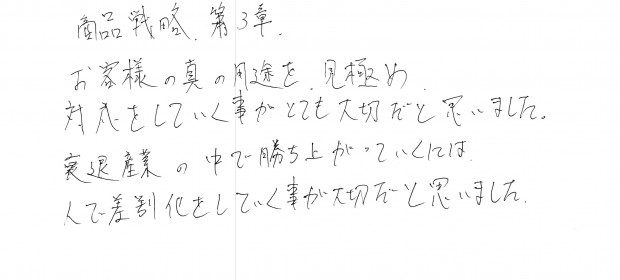 商品戦略、第3章、
お客様の真の用途を、見極め
対応をしていく事がとても大切だと思いました。
衰退産業の中で勝ち上がっていくには、
人で差別化をしていく事が大切だと思いました。